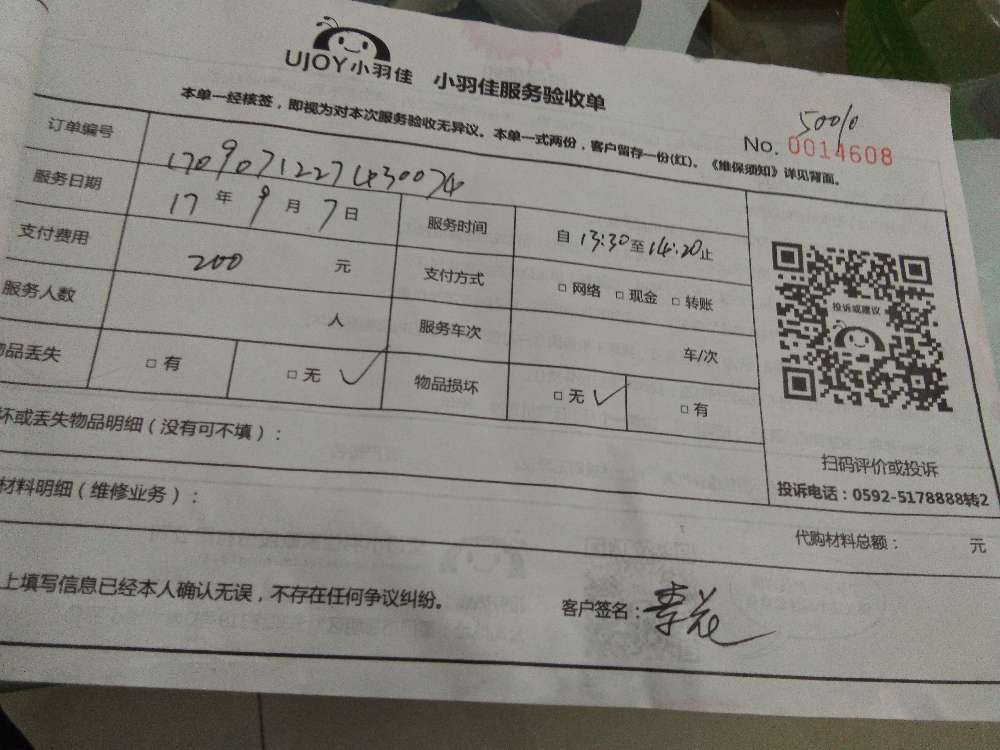 UJOY小羽佳 小羽佳服务验收单
本单一经核签，即视为对本次服务验收无异议。本单一式两份，客户留存一份(红)。《维保须知》详见背面。
No. 0014608
订单编号 170907122743007
服务日期 17 年 9 月 7 日 服务时间 自 13:30 至 14:20 止
支付费用 200 元 支付方式 □ 网络 □ 现金 □ 转账
服务人数 人 服务车次 车/次
物品丢失 □ 有 □ 无 ✓ 物品损坏 □ 无 ✓ □ 有
坏或丢失物品明细（没有可不填）：
投诉或建议
扫码评价或投诉
投诉电话：0592-5178888转2
材料明细（维修业务）：
代购材料总额： 元
上填写信息已经本人确认无误，不存在任何争议纠纷。
客户签名：